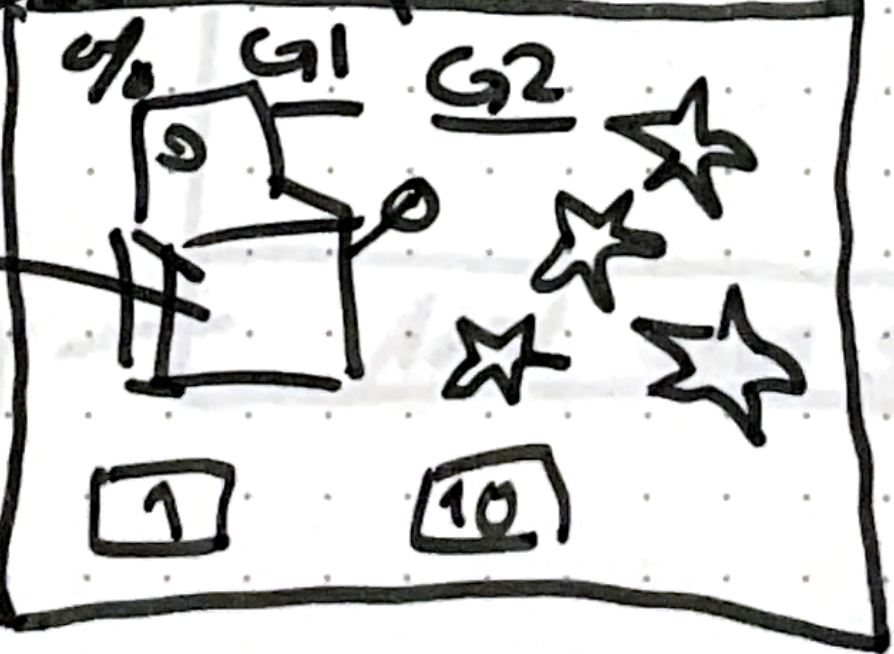 % G1 G2
1 10